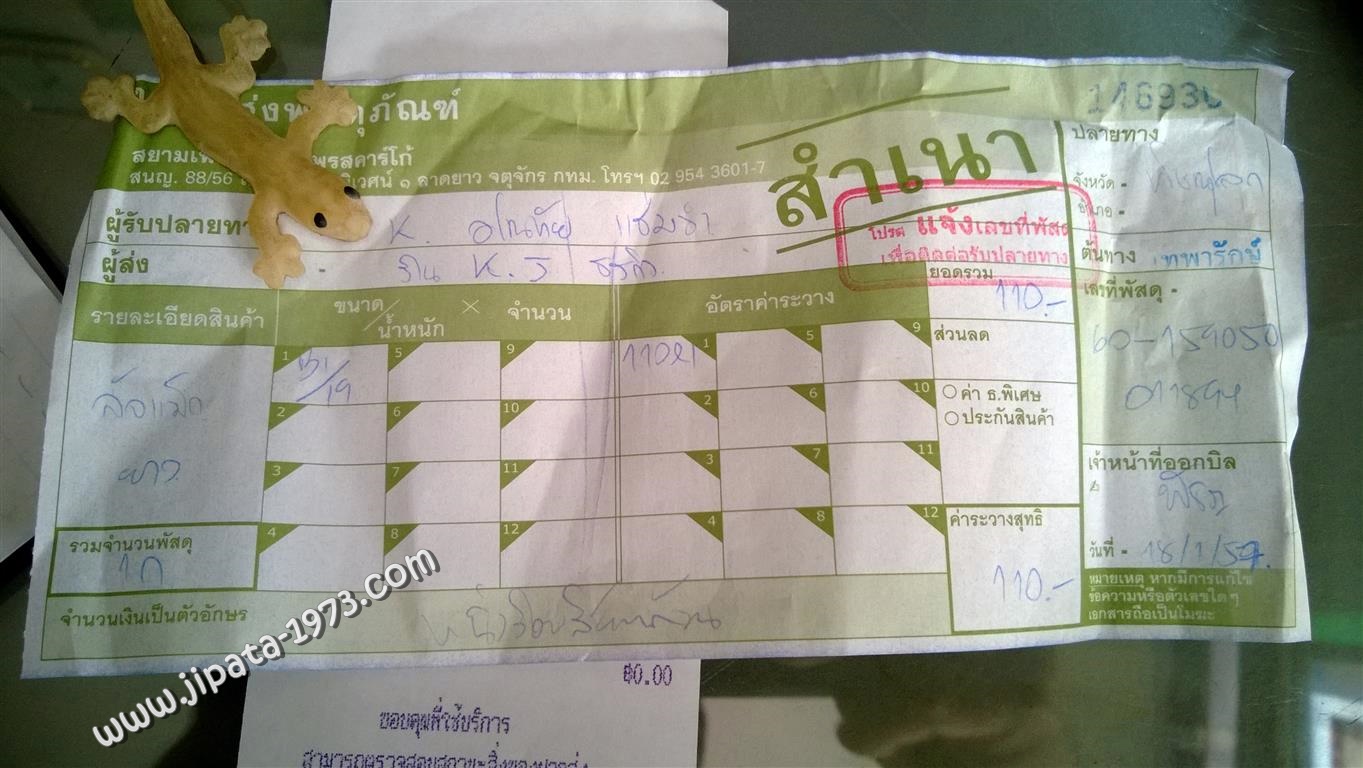 146930
สยามเ พรสคาร์โก้
สนญ. 88/56 วิเวศน์ ๑ ลาดยาว จตุจักร กทม. โทรฯ 02 954 3601-7
สำเนา
ปลายทาง
จังหวัด - พิษณุโลก
อำเภอ -
ผู้รับปลายทา K.
โปรด แจ้งเลขที่พัสดุ
เพื่อติดต่อรับปลายทาง
ผู้ส่ง - ร้าน K.J ธุรกิจ
ต้นทาง เทพารักษ์
รายละเอียดสินค้า
ขนาด/น้ำหนัก × จำนวน
อัตราค่าระวาง
ยอดรวม
110.-
เลขที่พัสดุ -
60-159050
1 5 9
1 5 9
ส่วนลด
110
ล้อแม็ก
2 6 10
2 6 10
ค่า ธ.พิเศษ
ประกันสินค้า
ยาง
3 7 11
3 7 11
เจ้าหน้าที่ออกบิล
4 8 12
4 8 12
ค่าระวางสุทธิ
110.-
รวมจำนวนพัสดุ
วันที่ - 18/1/57
จำนวนเงินเป็นตัวอักษร
หนึ่งร้อยสิบบาทถ้วน
หมายเหตุ หากมีการแก้ไข
ข้อความหรือตัวเลขใดๆ
เอกสารถือเป็นโมฆะ
www.jipata-1973.com
฿0.00
ขอบคุณที่ใช้บริการ
สามารถตรวจสอบสถานะสิ่งของฝากส่ง